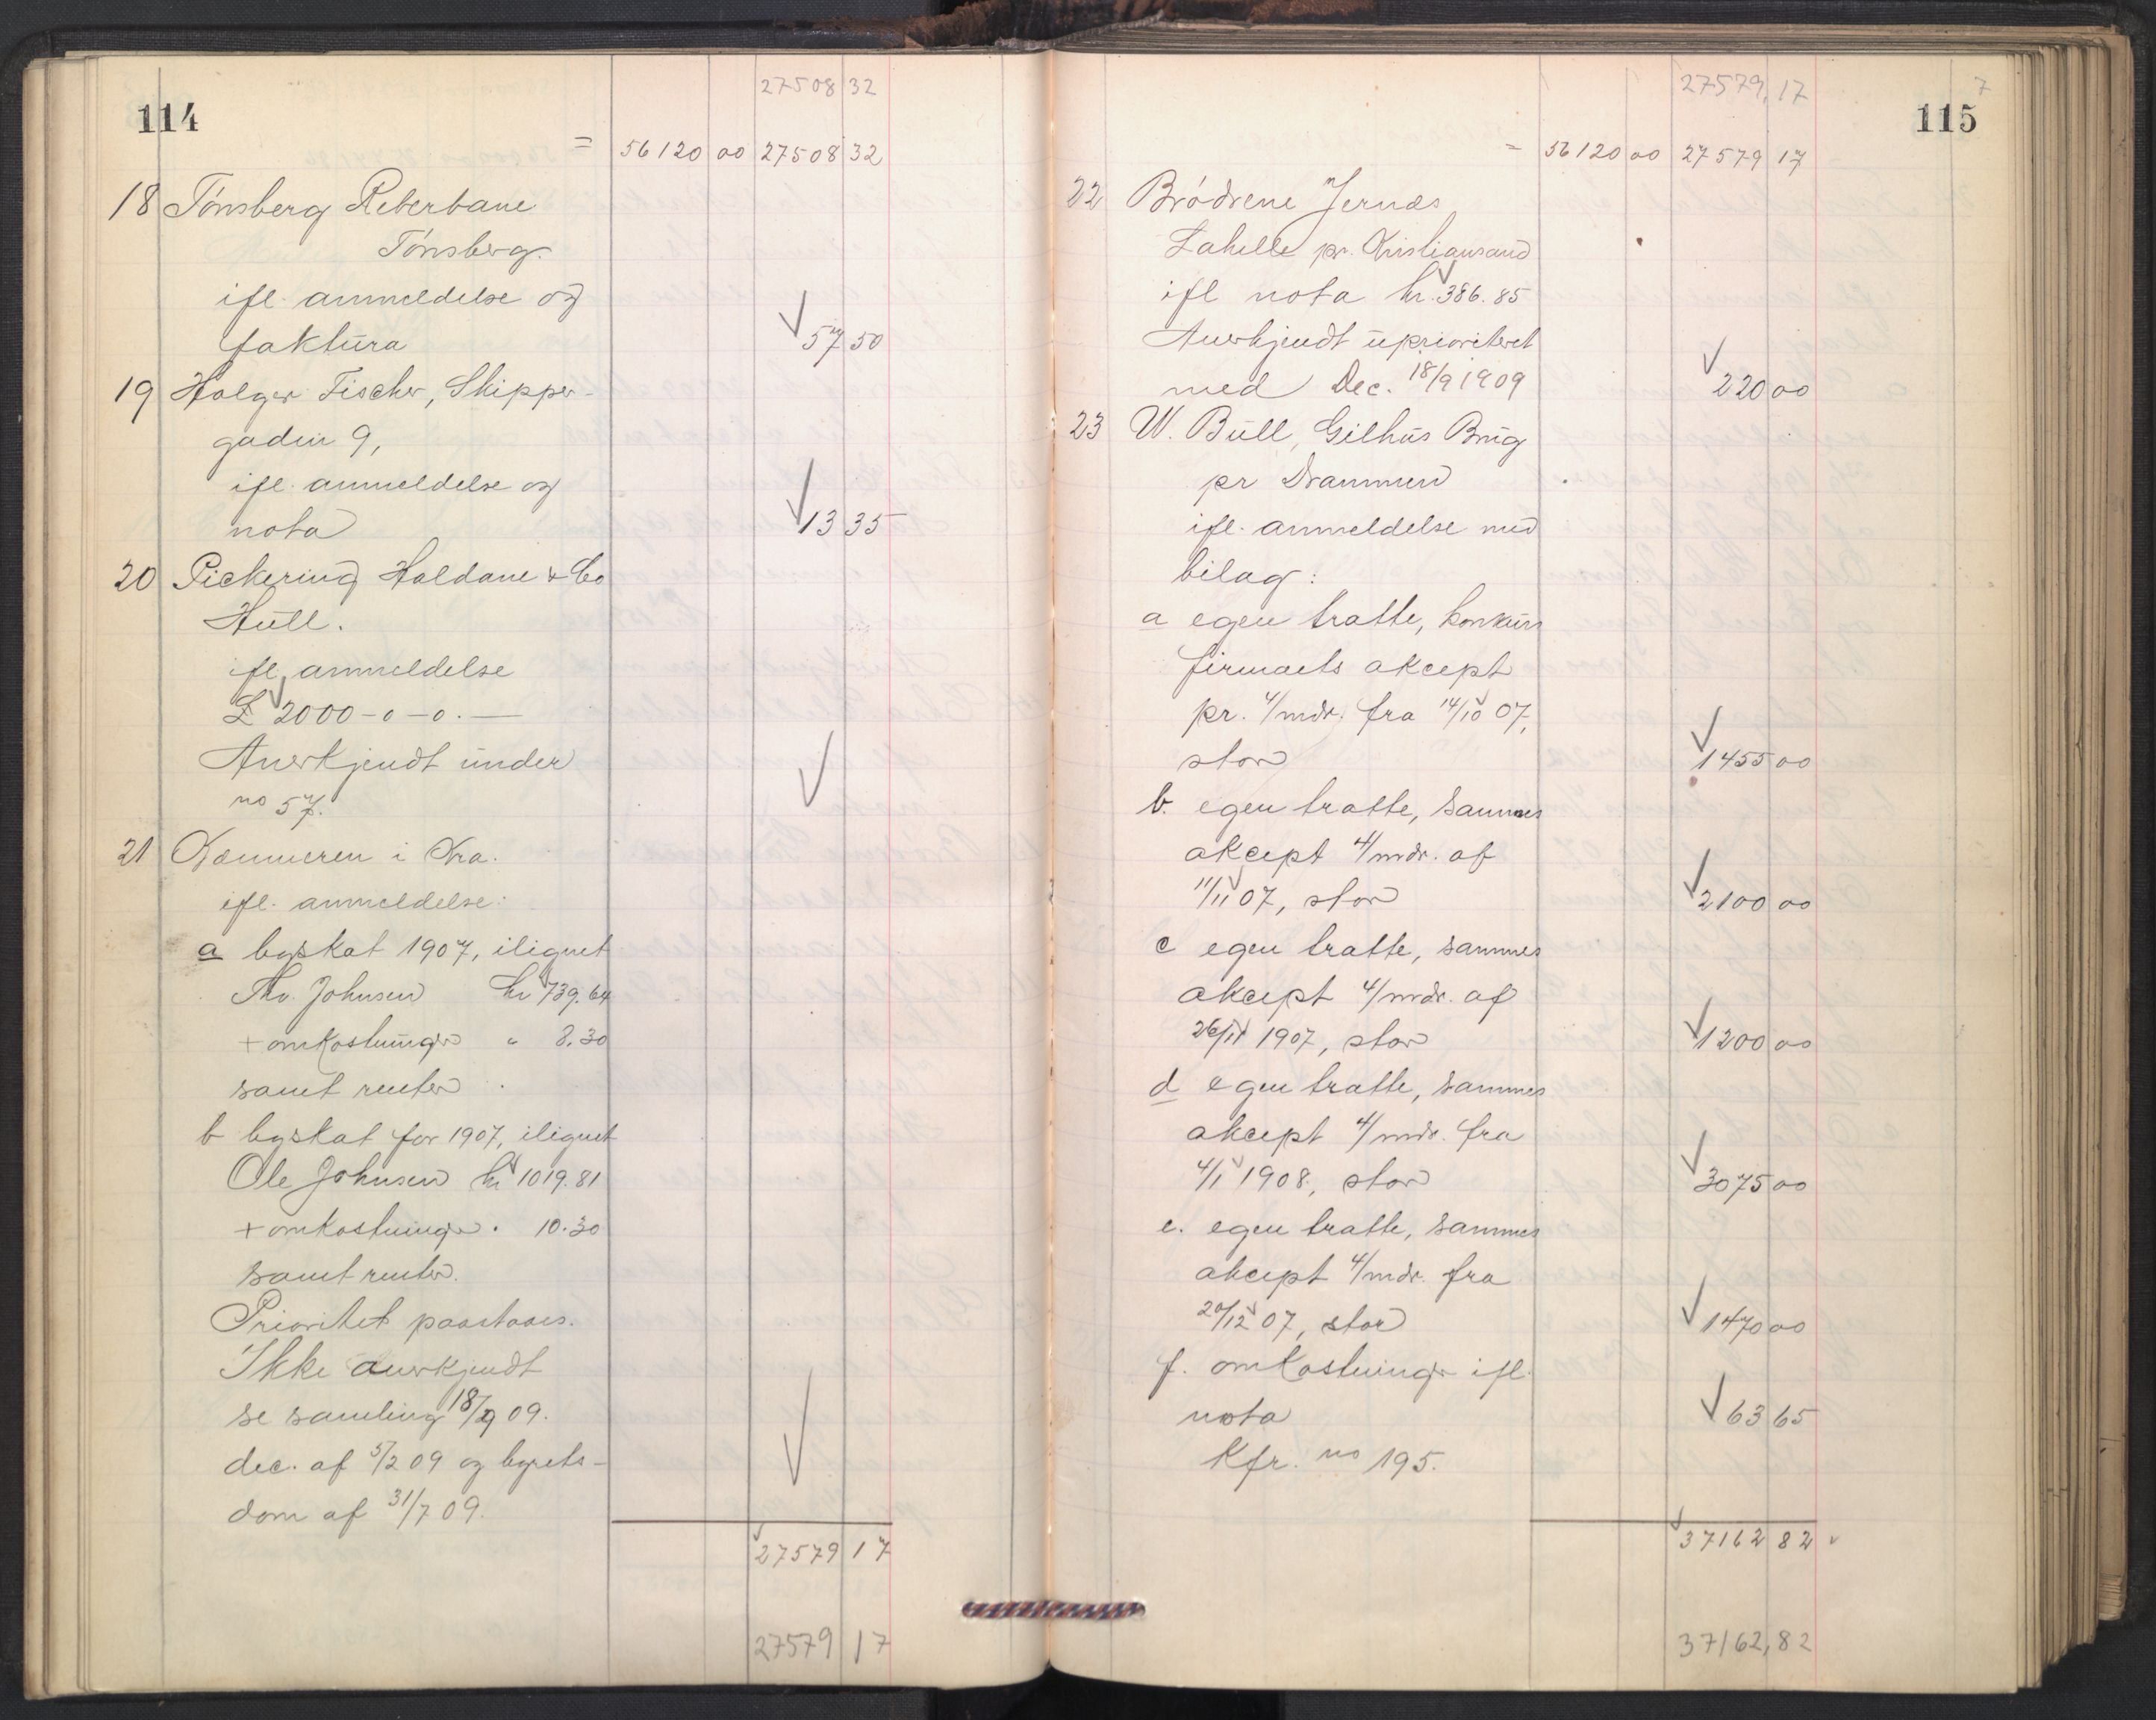 27508 32
114
= 56120 00 27508 32
18 Tønsberg Reberbane
Tønsberg.
ifl. anmeldelse og
faktura 57 50
19 Holger Fischer, Skipper-
gaden 9,
ifl. anmeldelse og
nota 13 35
20 Pickering Haldane & Co
Hull.
ifl. anmeldelse
£ 2000-0-0.—
Anerkjendt under
no 57.
21 Kæmneren i Kra.
ifl. anmeldelse:
a byskat 1907, ilignet
Thv. Johnsen kr 739.64
+ omkostninger " 8.30
samt renter
b byskat for 1907, ilignet
Ole Johnsen kr 1019.81
+ omkostninger . 10.30
samt renter.
Prioritet paastaaes.
Ikke anerkjendt
se samling 18/9 09.
dec. af 5/2 09 og byrets-
dom af 31/7 09.
27579 17
27579 17
27579,17
7
115
= 56120 00 27579 17
22 Brødrene Jernæs
Lahelle pr. Kristiansand
ifl nota kr. 386.85
Anerkjendt uprioriteret
med Dec. 18/9 1909 220 00
23 W. Bull, Gilhus Brug
pr Drammen
ifl. anmeldelse med
bilag:
a egen tratte, konkurs
firmaets akcept
pr. 4/mdr. fra 14/10 07,
stor 1455 00
b. egen tratte, sammes
akcept 4/mdr. af
11/11 07, stor 2100 00
c egen tratte, sammes
akcept 4/mdr. af
26/11 1907, stor 1200 00
d egen tratte, sammes
akcept 4/mdr. fra
4/1 1908, stor 3075 00
e. egen tratte, sammes
akcept 4/mdr. fra
20/12 07, stor 1470 00
f. omkostninger ifl.
nota 63 65
Kfr. no 195.
37162 82
37162,82